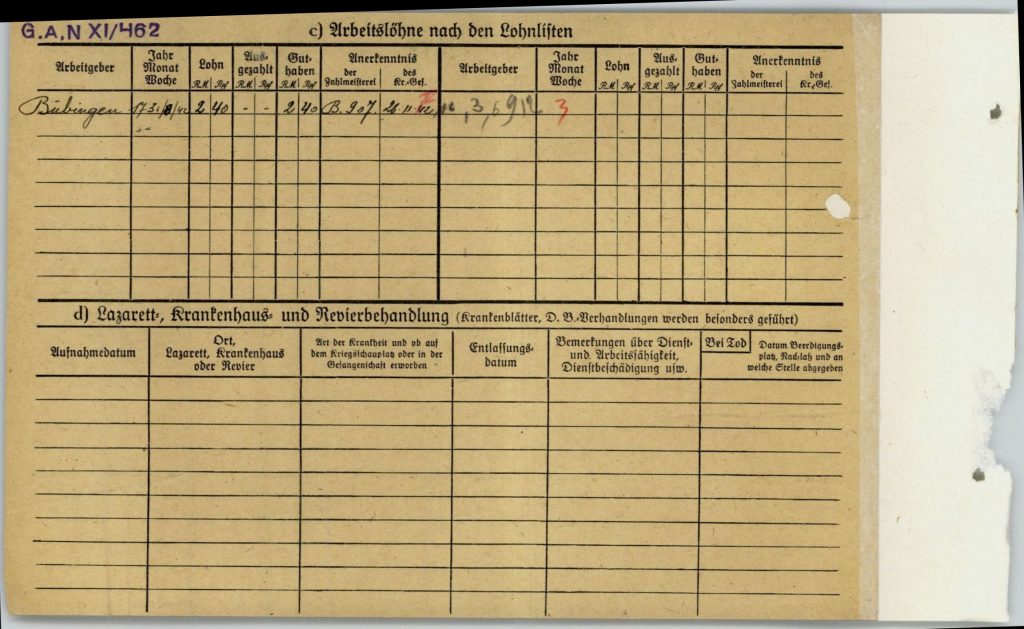 G.A,N XI/462
c) Arbeitslöhne nach den Lohnlisten
Arbeitgeber Jahr Monat Woche Lohn RM Rpf Ausgezahlt RM Rpf Guthaben RM Rpf Anerkenntnis der Zahlmeisterei des Kr.-Gef. Arbeitgeber Jahr Monat Woche Lohn RM Rpf Ausgezahlt RM Rpf Guthaben RM Rpf Anerkenntnis der Zahlmeisterei des Kr.-Gef.
Bübingen 2 40 - - 2 40 B. 907 26 11 42 3
d) Lazarett-, Krankenhaus- und Revierbehandlung (Krankenblätter, D. B.-Verhandlungen werden besonders geführt)
Aufnahmedatum Ort, Lazarett, Krankenhaus oder Revier Art der Krankheit und ob auf dem Kriegsschauplatz oder in der Gefangenschaft erworben Entlassungsdatum Bemerkungen über Dienst- und Arbeitsfähigkeit, Dienstbeschädigung usw. Bei Tod Datum Beerdigungsplatz, Nachlaß und an welche Stelle abgegeben